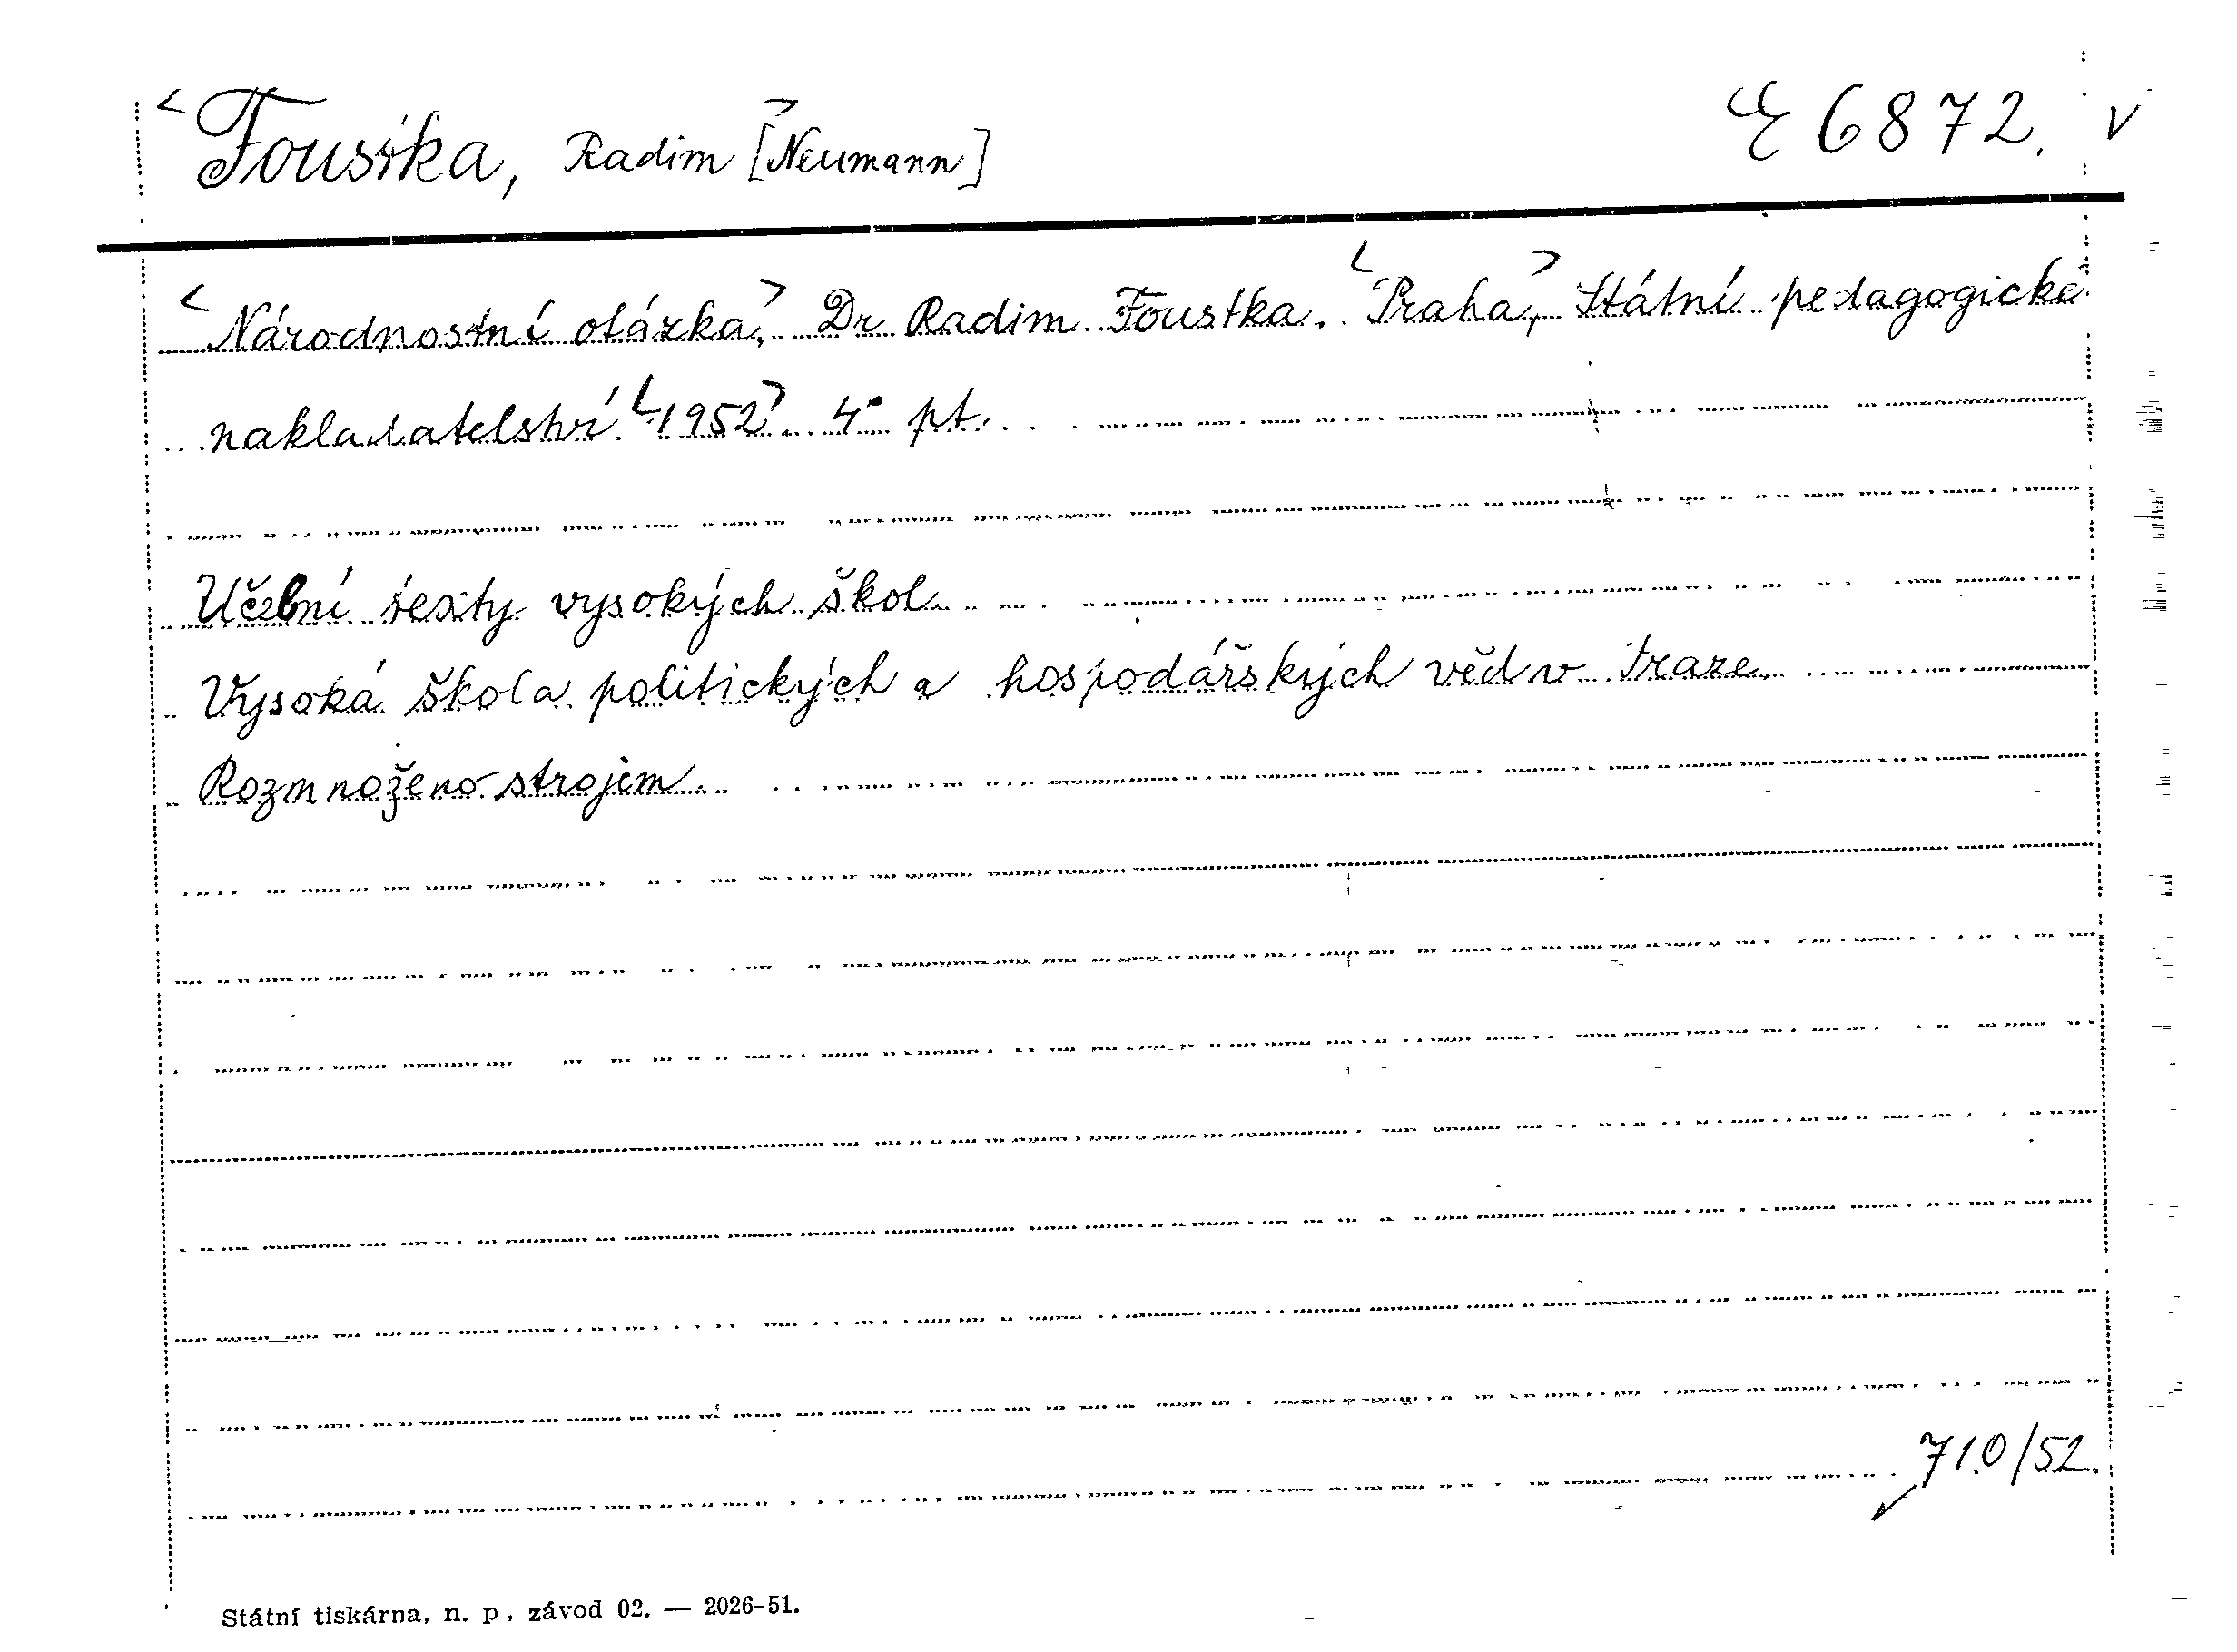 <Foustka, Radim> [Neumann] E 6872. V
<Národnostní otázka>, Dr Radim Foustka. <Praha>, Státní pedagogické
nakladatelství <1952>. 4° pt.
Učební texty vysokých škol
Vysoká škola politických a hospodářských věd v Praze.
Rozmnoženo strojem.
710/52.
Státní tiskárna, n. p., závod 02. — 2026-51.